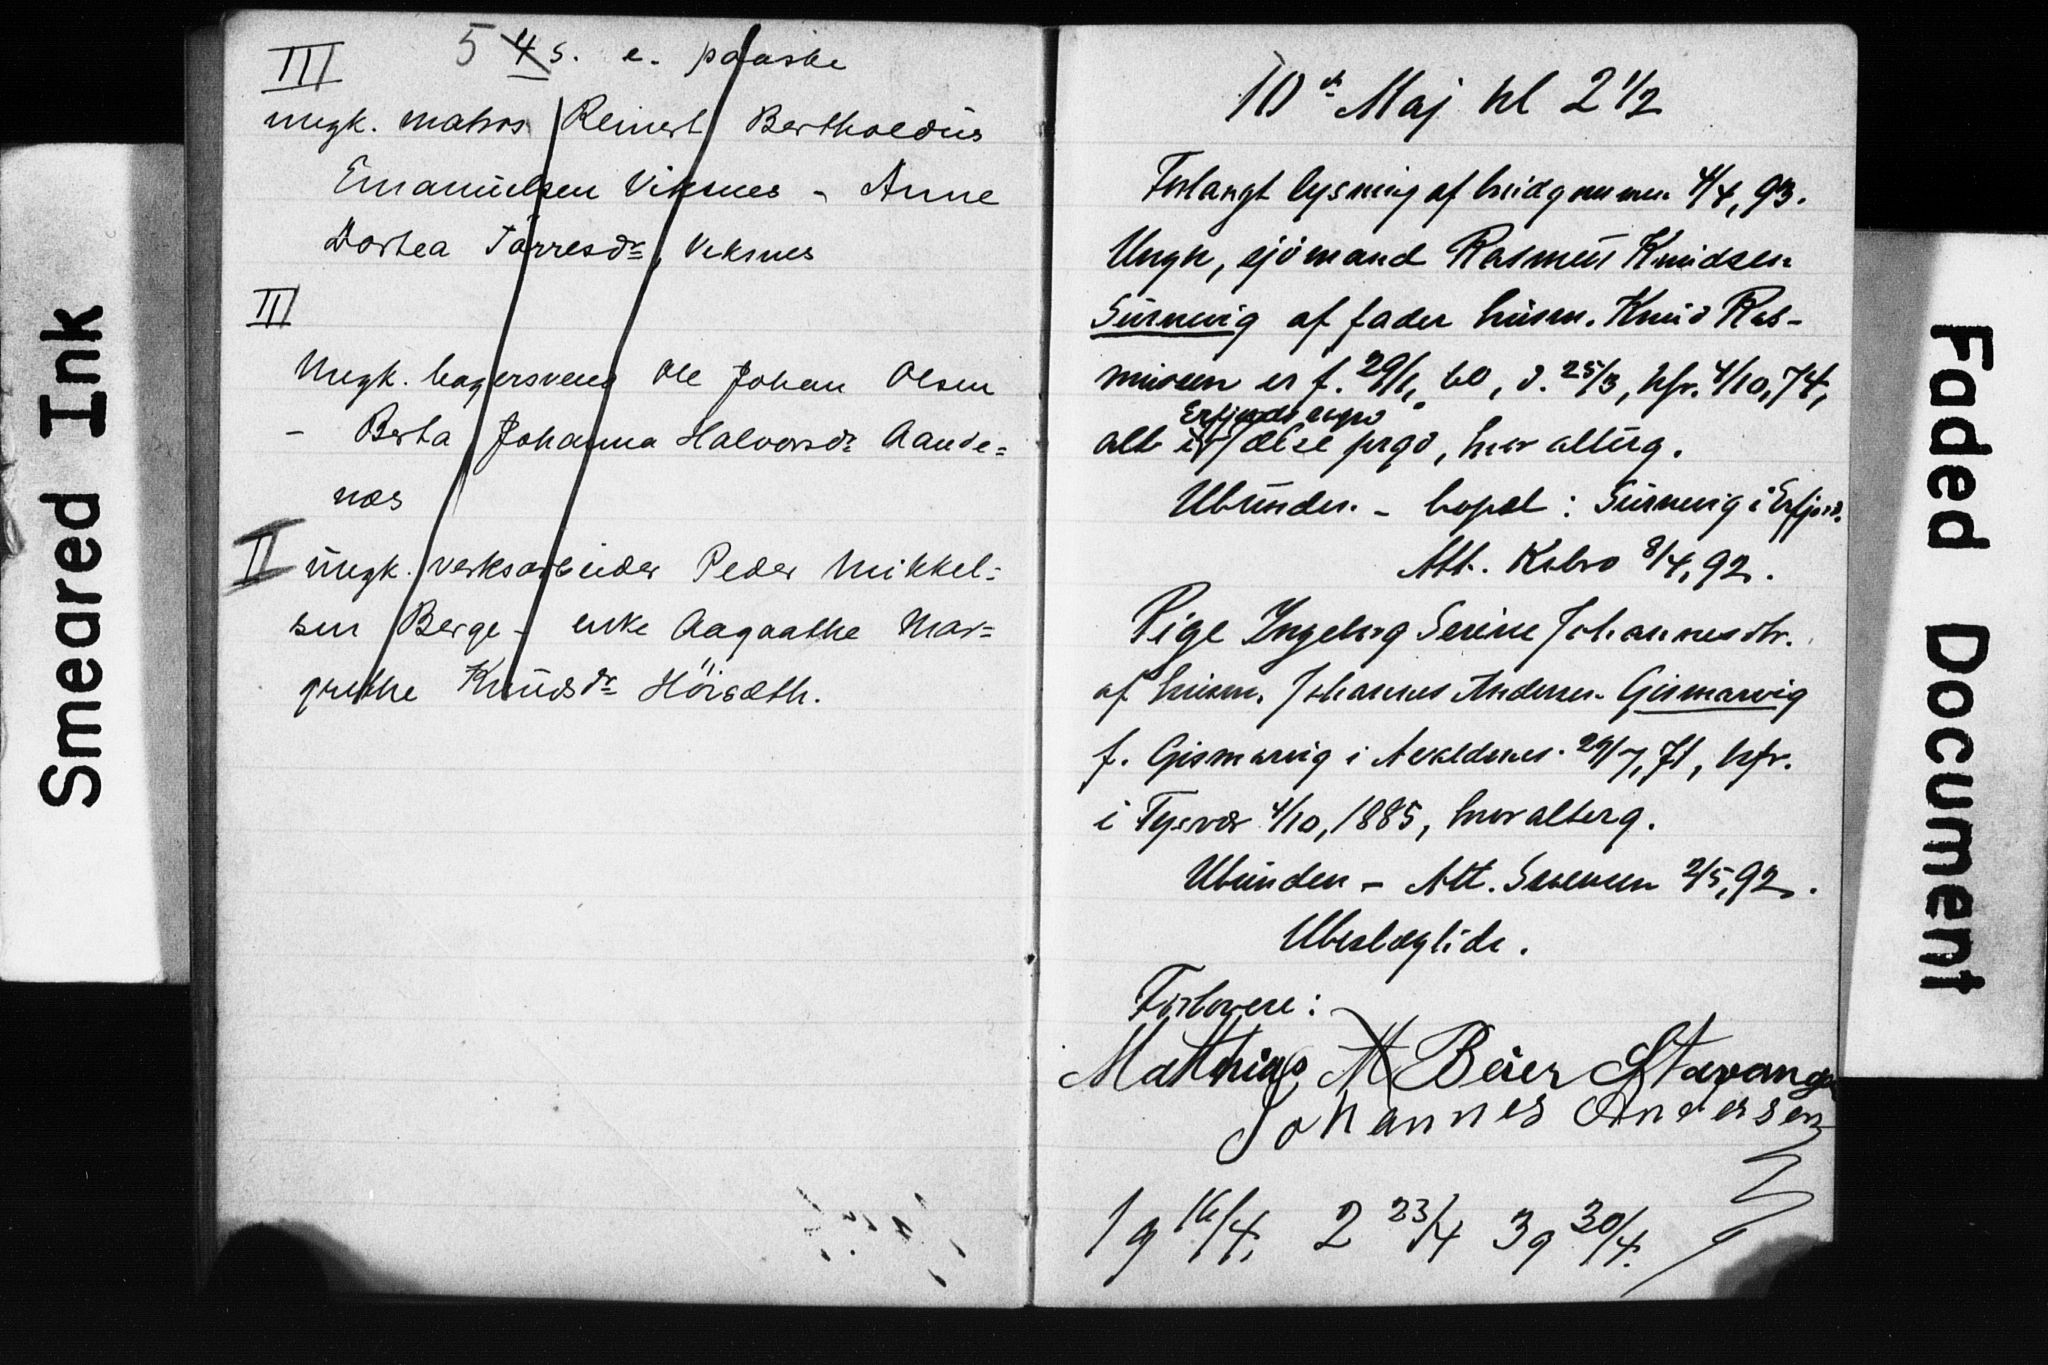 Smeared Ink
5 4 s. e. paaske
III
ungk. matros Reinert Bertholdus
Emanuelsen Viksnes - Anne
Dortea Tørresdr, Viksnes
III
Ungk. bagersvend Ole Johan Olsen
- Berta Johanna Halvorsdr Aande=
nes
II ungk. verksarbeider Peder Mikkel=
sen Berge - enke Aagaathe Mar=
grethe Knudsdr Höisæth.
10de Maj kl 2 1/2
Forlangt lysning af brudgommen 4/4, 93.
Ungk, sjömand Rasmus Knudsen
Surnevig af fader husm. Knud Ras-
mussen er f. 29/1, 60, d. 25/3, kfr. 4/10, 74,
Erfjords
alt i Jælse prgd, hvor alterg.
Ubunden. - bopæl: Surnevig i Erfjord.
Att. 8/4, 92.
Pige Ingeborg Serine Johannesdtr.
af husm. Johannes Andersen Gismarvig
f. Gismarvig i Avaldsnes 29/7, 71, kfr.
i Tysvær 4/10, 1885, hvor alterg.
Ubunden - Att. 2/5, 92.
Ubeslægtede.
Forlovere:
Matthias M Beier Stavanger
Johannes Andersen
1 g 16/4, 2 23/4 3 g 30/4.
Faded Document